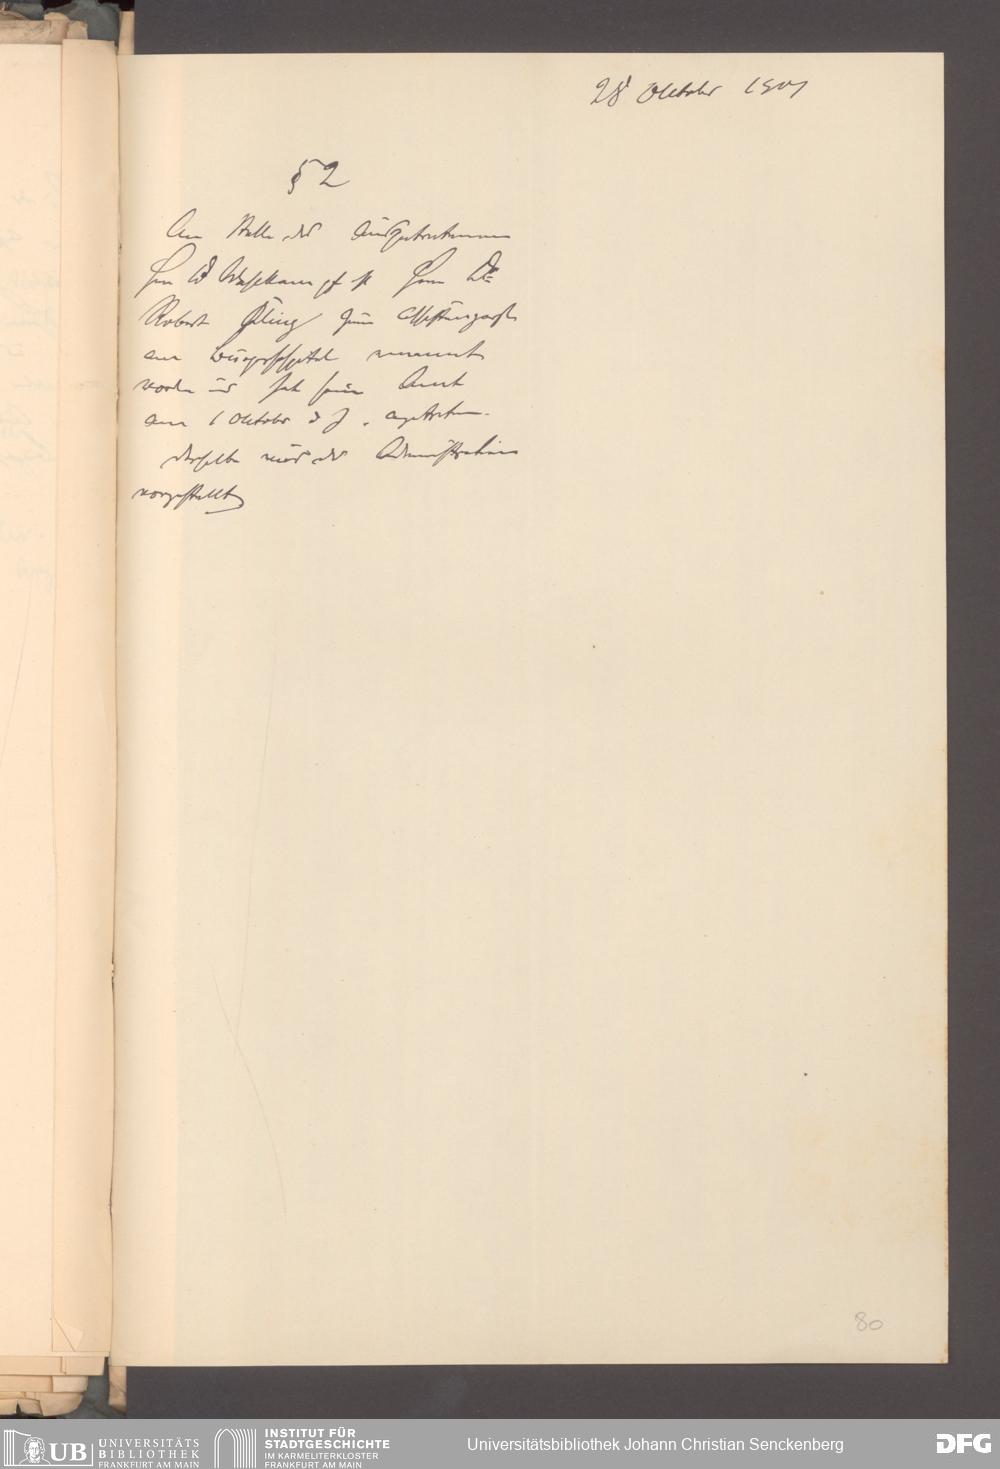 28 Oktober 1901
§ 2
An Stelle des Ausgetretenen
Hrn Dr ist Herr Dr
Robert zum Assistenzarzt
am Bürgerhospital ernannt
worden und hat sein Amt
am 1 Oktober d J. angetreten.
derselbe wird der Administration
vorgestellt
80
UB UNIVERSITÄTS
BIBLIOTHEK
FRANKFURT AM MAIN
INSTITUT FÜR
STADTGESCHICHTE
IM KARMELITERKLOSTER
FRANKFURT AM MAIN
Universitätsbibliothek Johann Christian Senckenberg
DFG